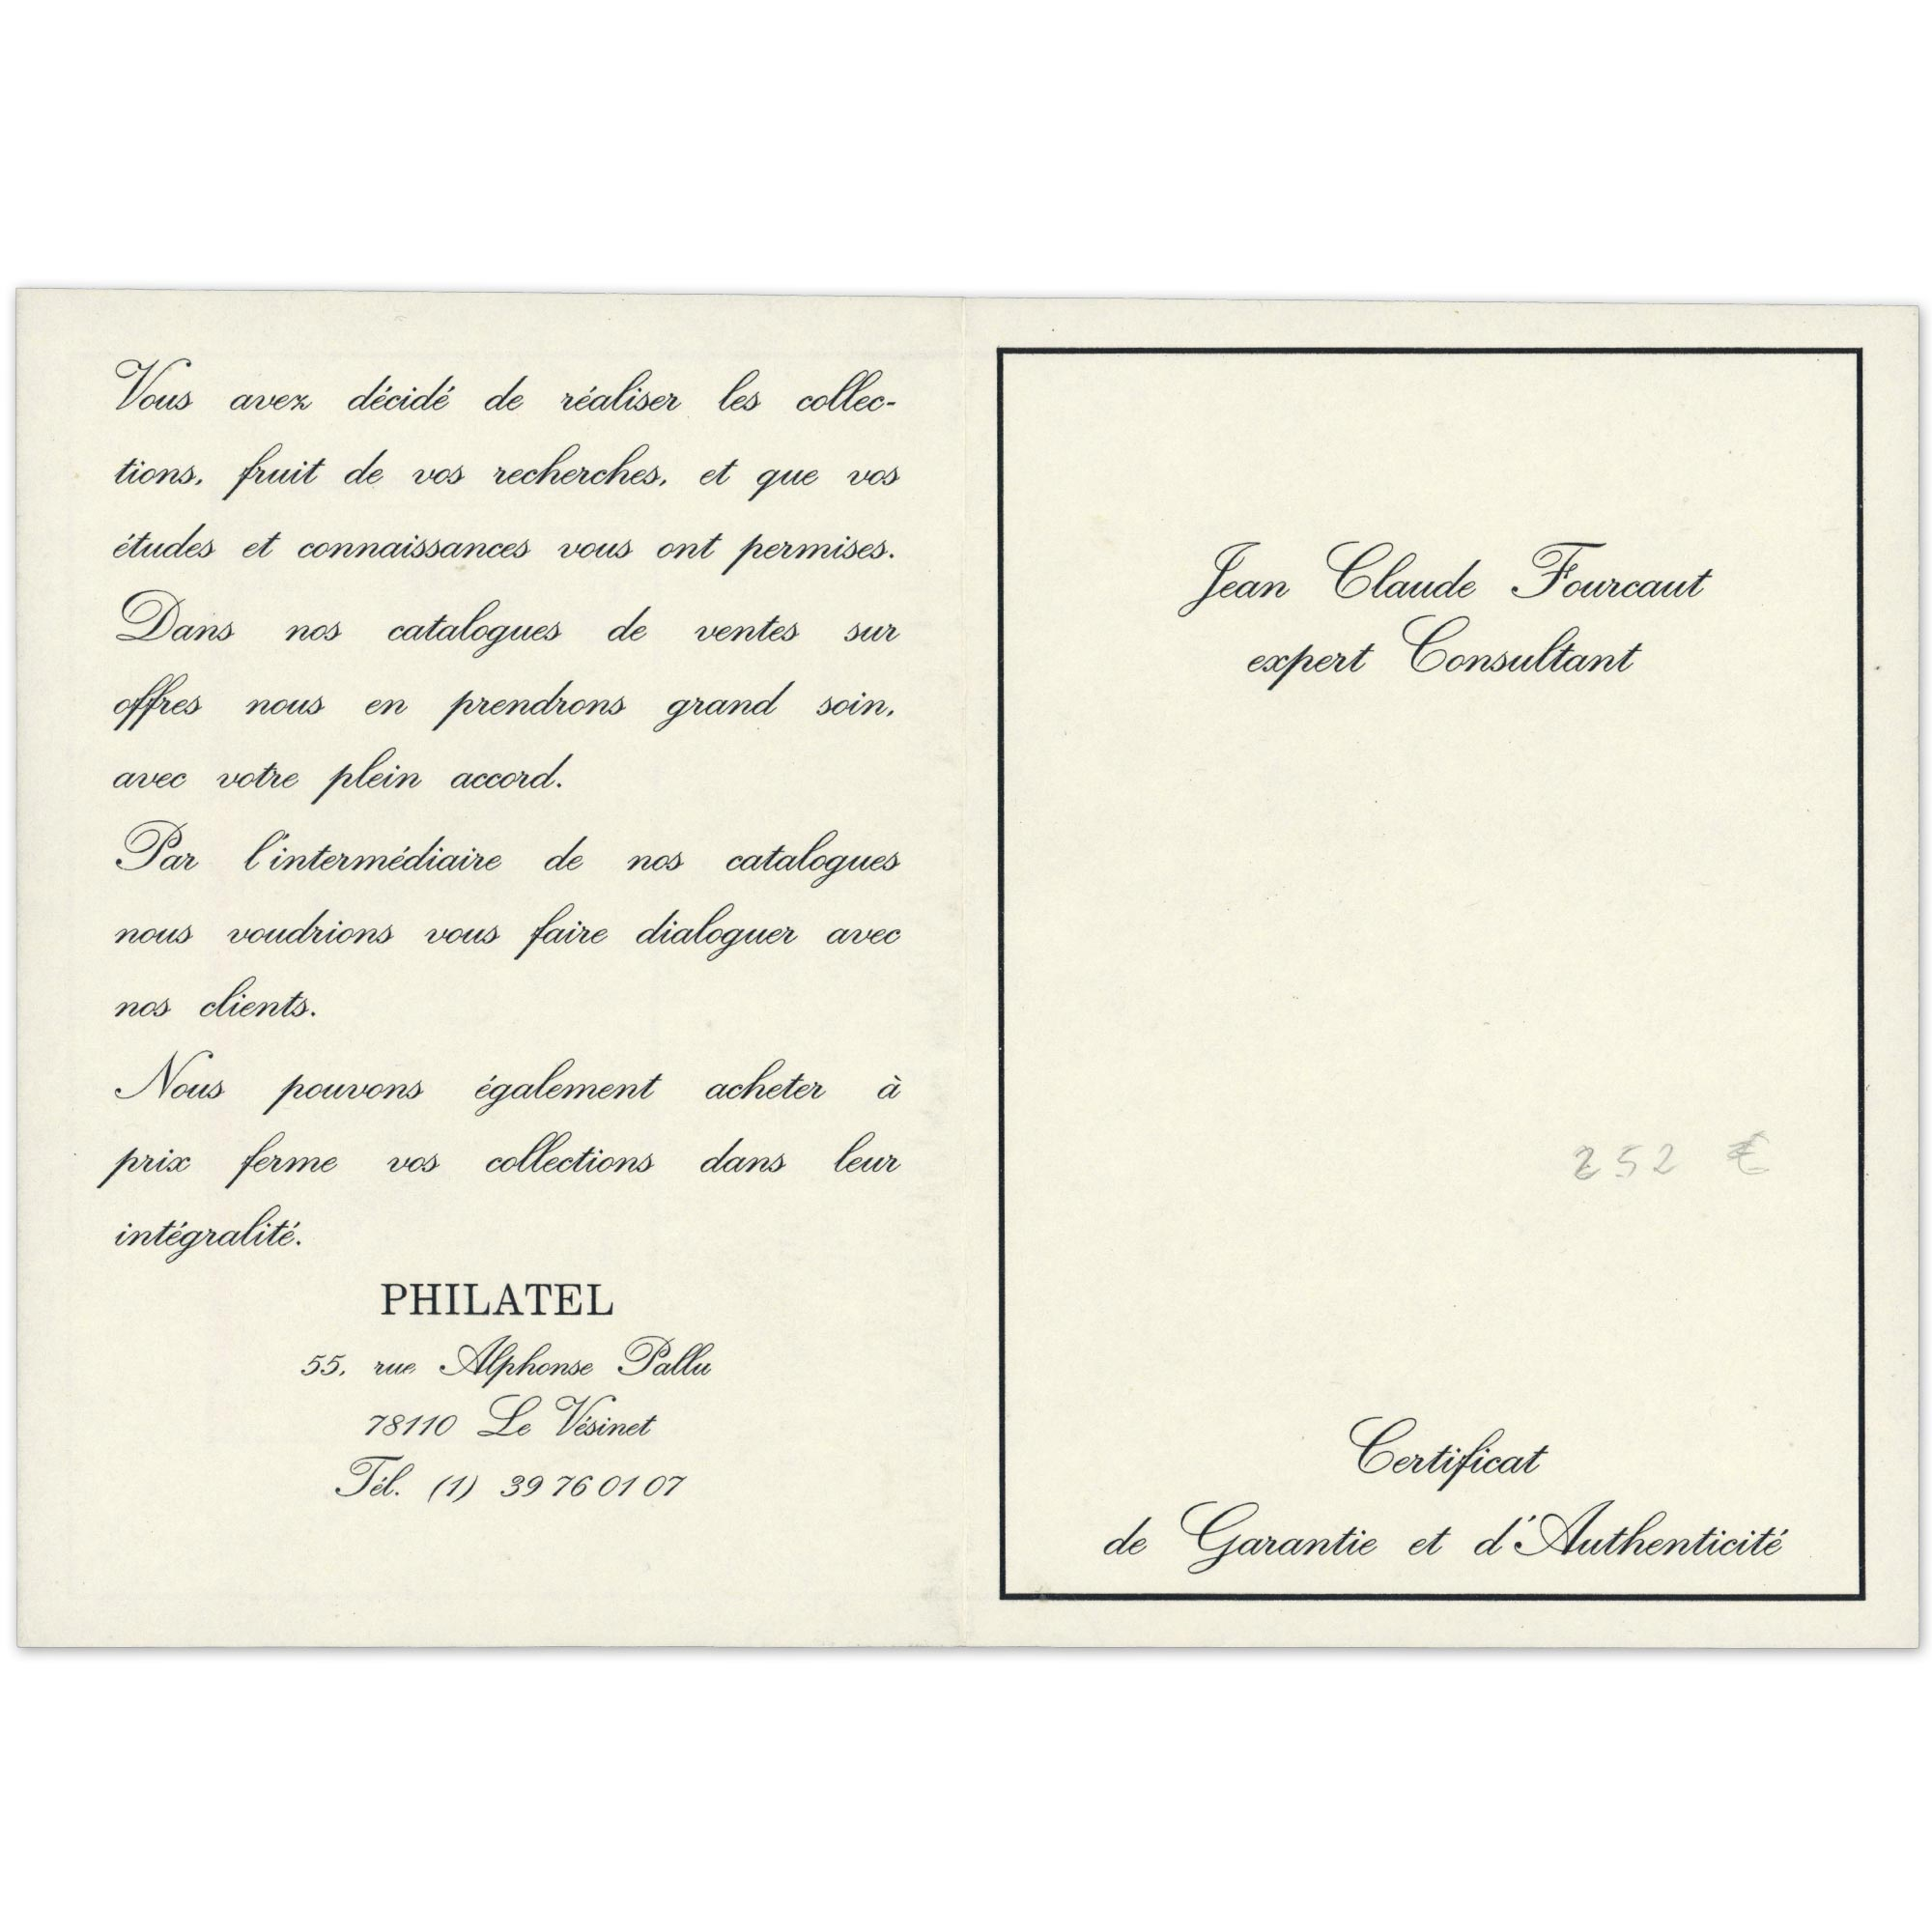 Vous avez décidé de réaliser les collec-
tions, fruit de vos recherches, et que vos
études et connaissances vous ont permises.
Dans nos catalogues de ventes sur
offres nous en prendrons grand soin,
avec votre plein accord.
Par l'intermédiaire de nos catalogues
nous voudrions vous faire dialoguer avec
nos clients.
Nous pouvons également acheter à
prix ferme vos collections dans leur
intégralité.
PHILATEL
55, rue Alphonse Pallu
78110 Le Vésinet
Tél. (1) 39 76 01 07
Jean Claude Fourcaut
expert Consultant
252 €
Certificat
de Garantie et d'Authenticité